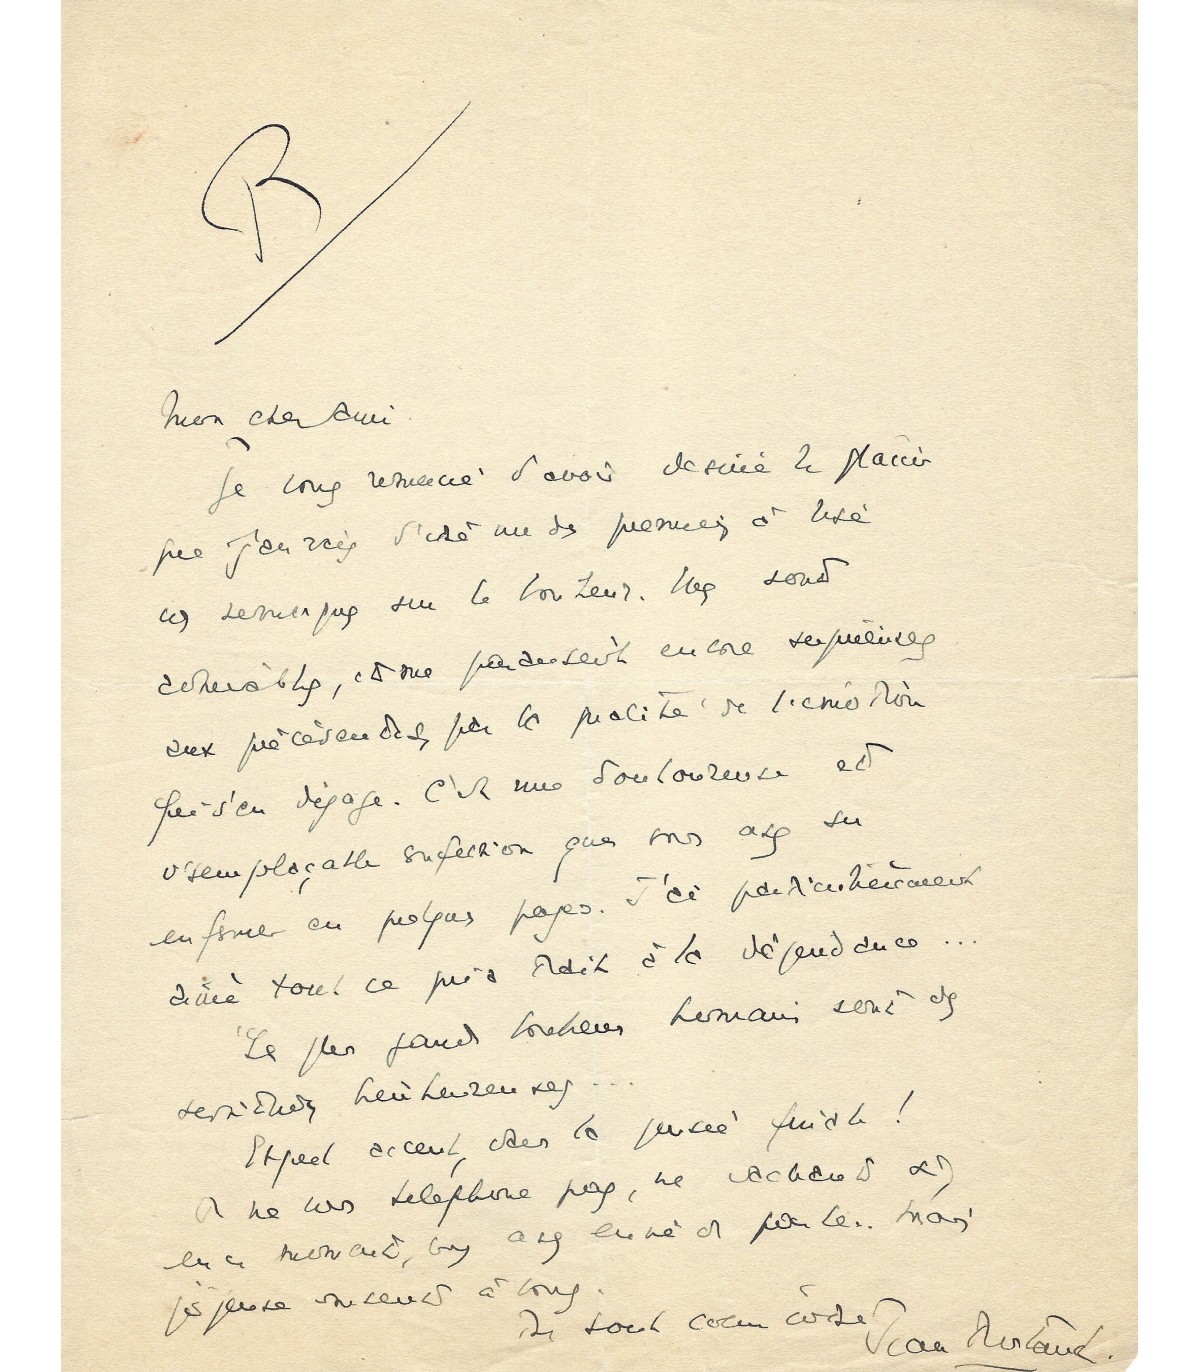 R
Mon cher ami
Je vous remercie d'avoir deviné le plaisir
que j'aurais d'être un des premiers à lire
ces remarques sur le bonheur. Elles sont
admirables, et me paraissent encore supérieures
aux précédentes, par la qualité de l'émotion
qui s'en dégage. C'est une douloureuse et
irremplaçable confession que vous avez su
enfermer en quelques pages. J'ai particulièrement
aimé tout ce qui a trait à la dépendance...
Les plus grands bonheurs humains sont des
servitudes heureuses...
Et quel accent, dans la pensée finale !
Je ne vous téléphone pas, ne sachant si,
en ce moment, vous avez envie de parler.. Mais
je pense souvent à vous.
De tout cœur vôtre
Jean Rostand.